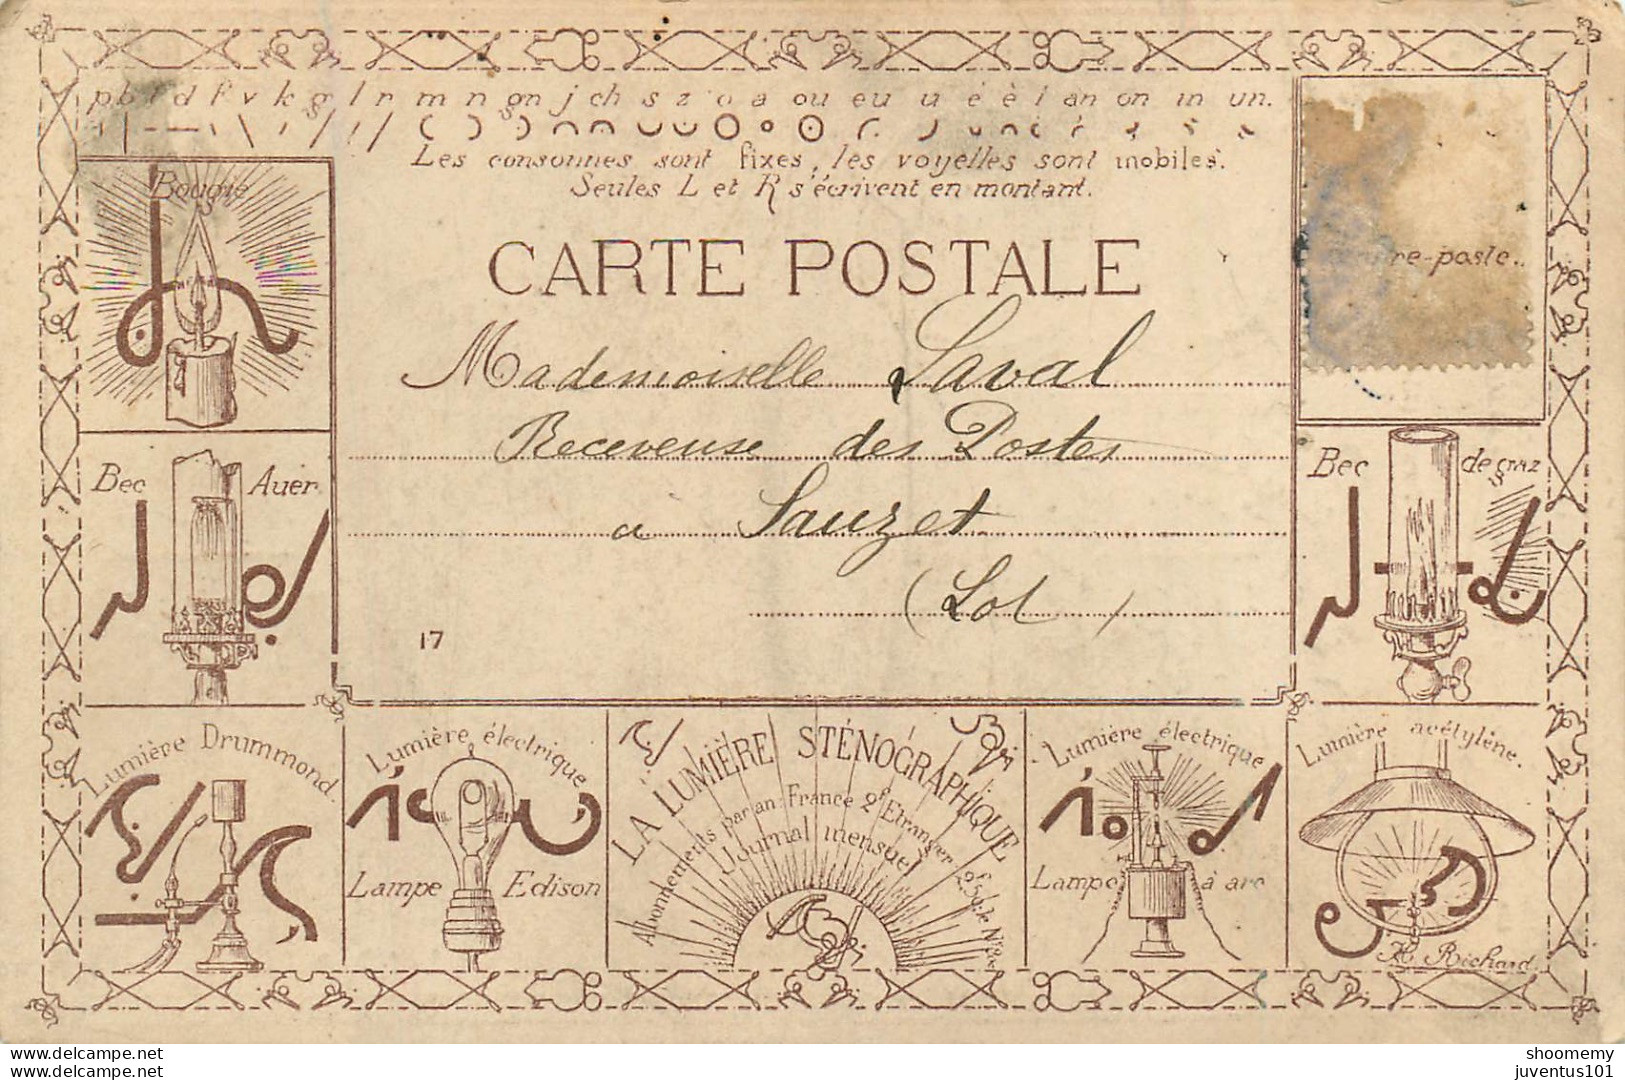 p b t d f v k g l r m n gn j ch s z o a ou eu u é è i an on in un.
Les consonnes sont fixes, les voyelles sont mobiles.
Seules L et R s'écrivent en montant.
CARTE POSTALE
Bougie
re-poste..
Mademoiselle Laval
Receveuse des Postes
à Sauzet
(Lot)
17
Bec Auer
Bec de gaz
Lumière Drummond.
Lumière électrique
Lampe Edison
LA LUMIÈRE STÉNOGRAPHIQUE
Abonnements par an: France 2f Etranger
Journal mensuel
Lumière électrique
Lampe à arc
Lumière acétylène.
Richard
www.delcampe.net
www.delcampe.net
shoomemy
juventus101